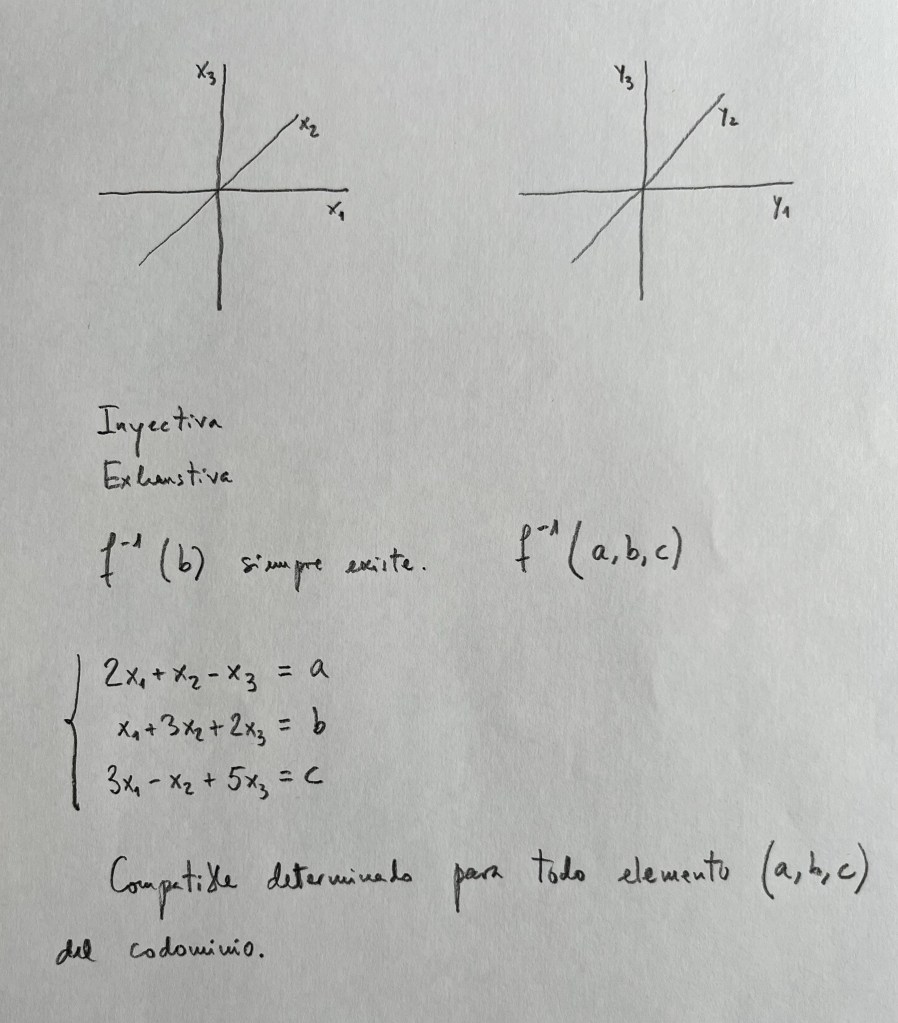 x₃
x₂
x₁
y₃
y₂
y₁
Inyectiva
Exhaustiva
f⁻¹(b) siempre existe. f⁻¹(a,b,c)
2x₁+x₂-x₃ = a
x₁+3x₂+2x₃ = b
3x₁-x₂+5x₃ = c
Compatible determinado para todo elemento (a,b,c)
del codominio.